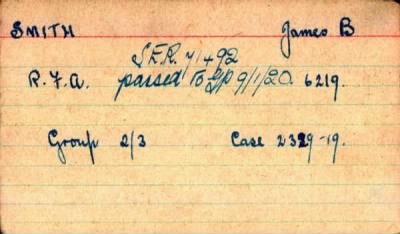 SMITH James B
S.E.R. 71+92
R.F.A. passed to 9/1/20. 6219.
Group 2/3 Case 2329-19.